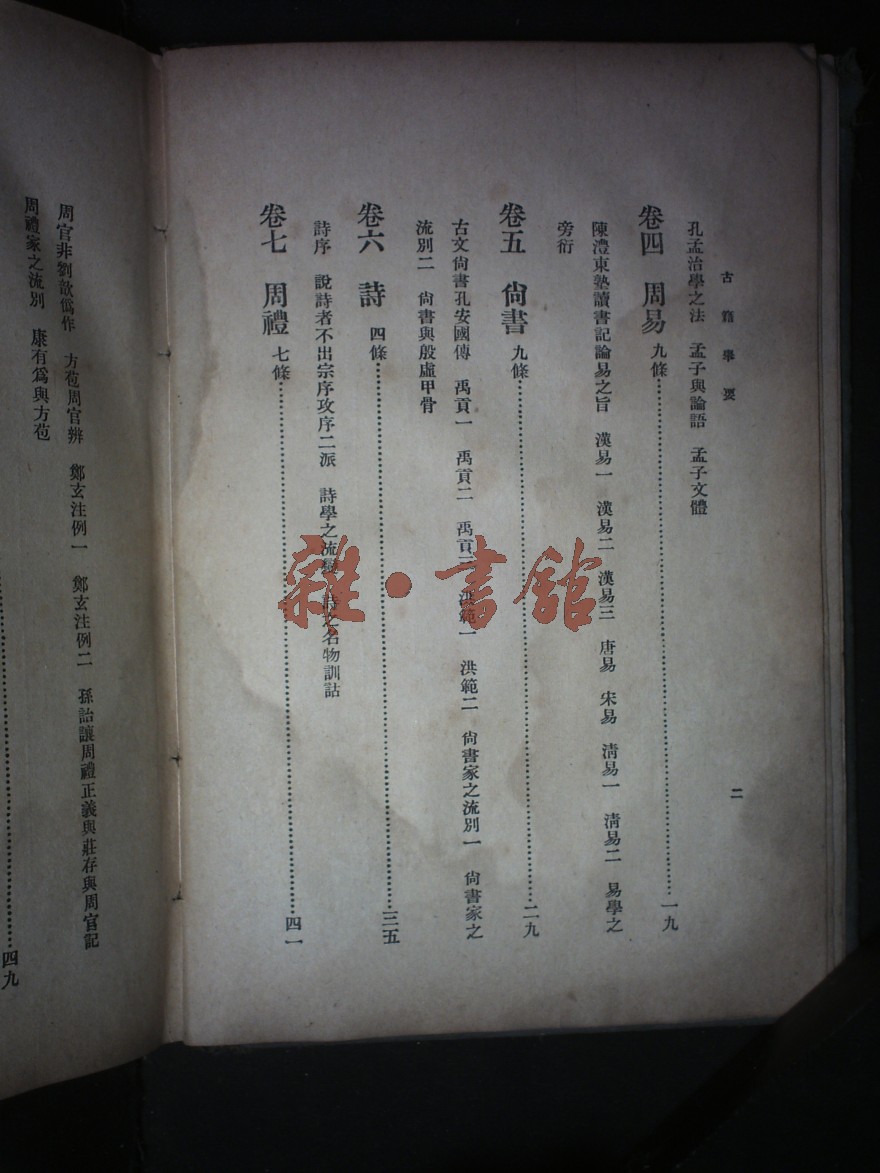 古籍舉要
二
孔孟治學之法　孟子與論語　孟子文體
卷四　周易　九條……一九
陳澧東塾讀書記論易之旨　漢易一　漢易二　漢易三　唐易　宋易　清易一　清易二　易學之
旁衍
卷五　尚書　九條……二九
古文尚書孔安國傳　禹貢一　禹貢二　禹貢三　洪範一　洪範二　尚書家之流別一　尚書家之
流別二　尚書與殷虛甲骨
卷六　詩　四條……三五
詩序　說詩者不出宗序攻序二派　詩學之流變　詩之名物訓詁
卷七　周禮　七條……四一
周官非劉歆僞作　方苞周官辨　鄭玄注例一　鄭玄注例二　孫詒讓周禮正義與莊存與周官記
周禮家之流別　康有爲與方苞
……四九
雜·書館